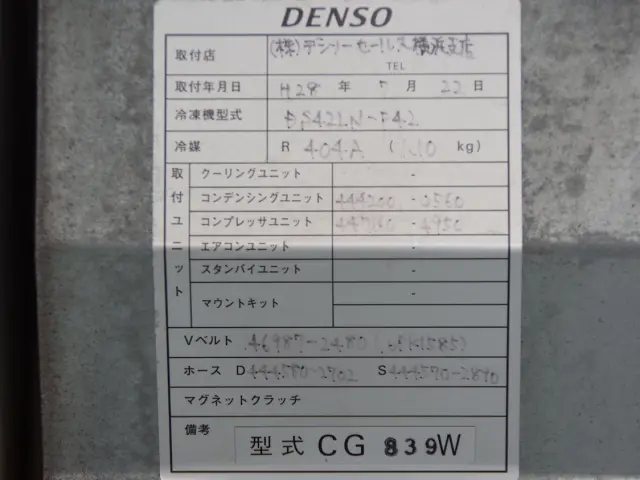 DENSO
取付店 (株)デンソーセールス横浜支店
TEL
取付年月日 H28 年 月 22 日
冷凍機型式
冷媒 R 404A ( kg)
取付ユニット
クーリングユニット -
コンデンシングユニット 444200 - 0560
コンプレッサユニット - 4950
エアコンユニット -
スタンバイユニット -
マウントキット -
Vベルト 46987-2480
ホース D 444580-2702 S 444570-2890
マグネットクラッチ
備考 型式 CG 839W